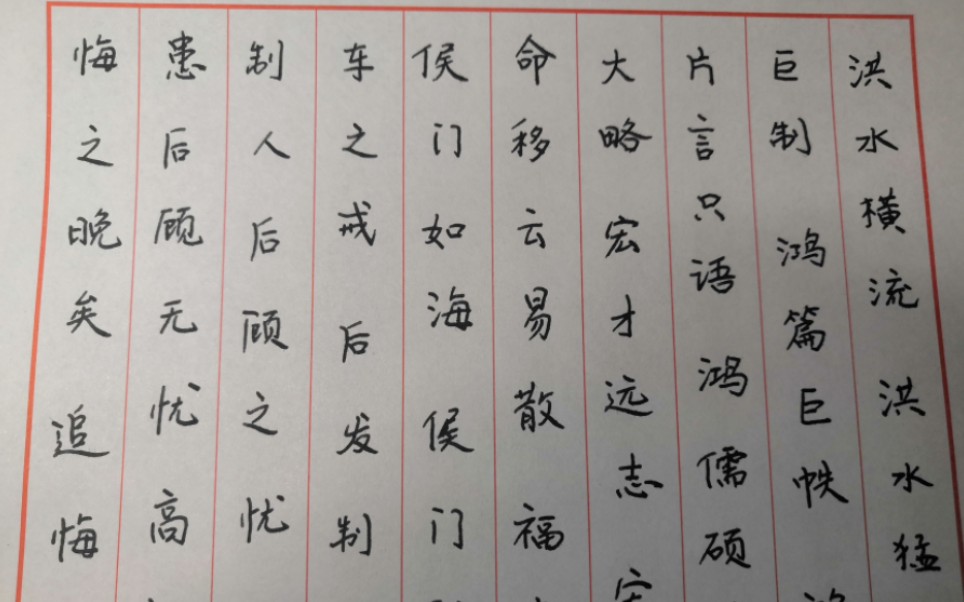 洪水横流 洪水猛
巨制 鸿篇巨帙
片言只语 鸿儒硕
大略宏才远志
命移云易散 福
侯门如海 侯门
车之戒 后发制
制人后顾之忧
患后顾无忧 高
悔之晚矣 追悔